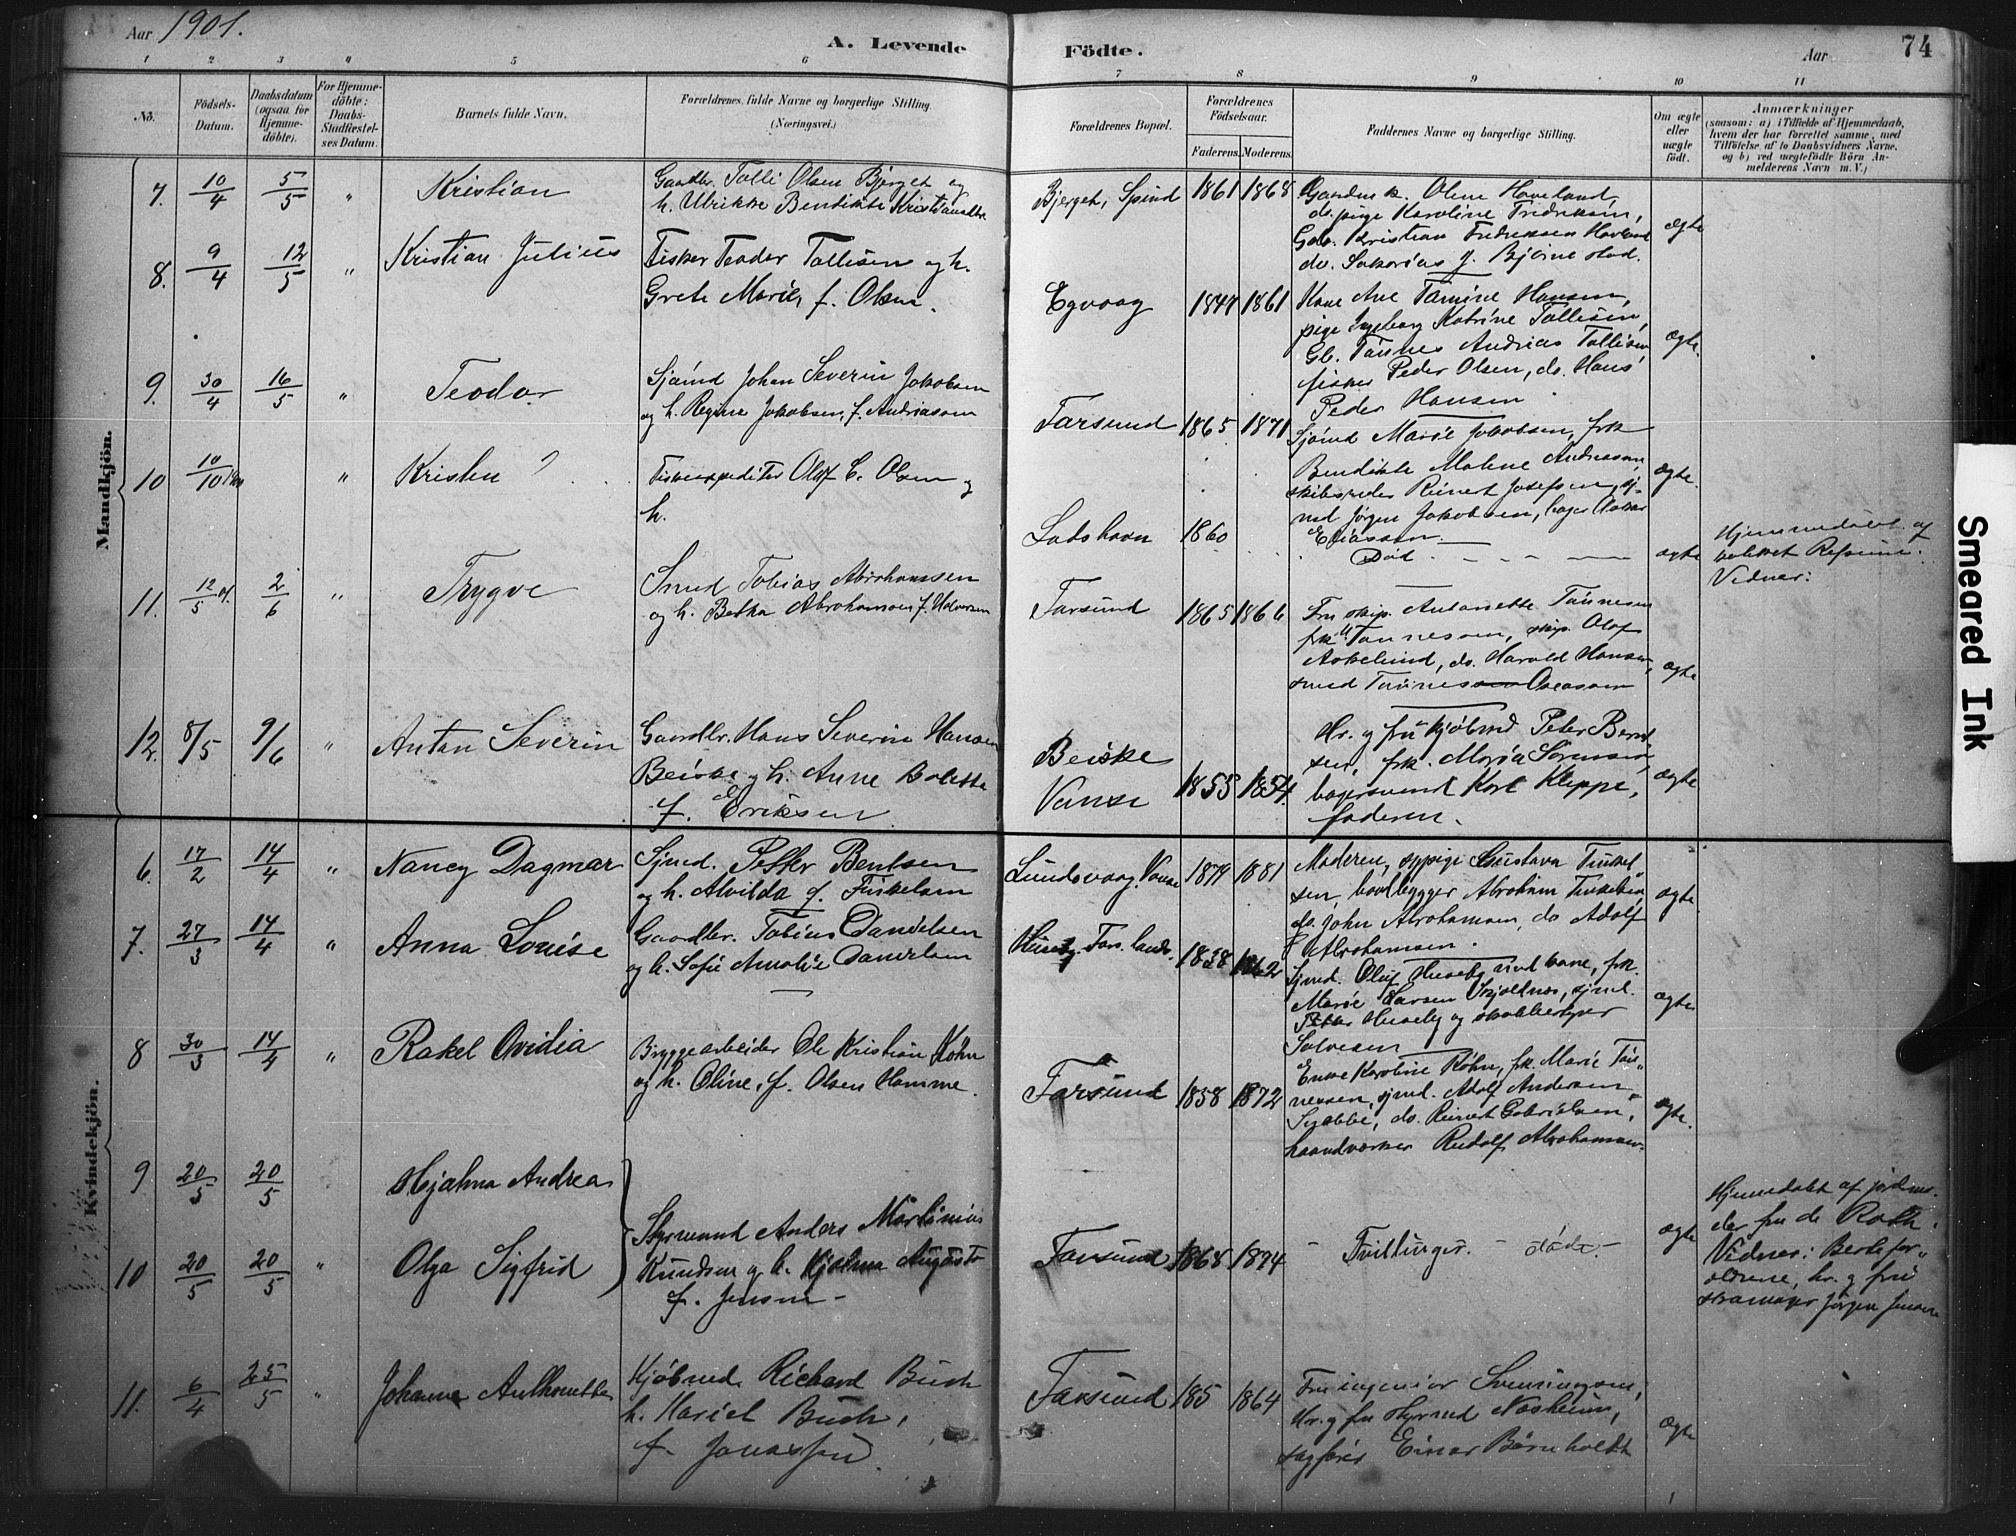 Aar 1901.
A. Levende Födte.
Aar
74
1 2 3 4 5 6 7 8 9 10 11
No.
Födsels-Datum.
Daabsdatum (ogsaa for Hjemme-döbte).
For Hjemme-döbte: Daabs-Stadfæstel-ses Datum.
Barnets fulde Navn.
Forældrenes fulde Navne og borgerlige Stilling (Næringsvei.)
Forældrenes Bopæl.
Forældrenes Födselsaar.
Faderens. Moderens.
Faddernes Navne og borgerlige Stilling.
Om ægte eller uægte födt.
Anmærkninger
(saasom: a) i Tilfælde af Hjemmedaab,
hvem der har forrettet samme, med
Tilföielse af to Daabsvidners Navne.
og b) ved uægtefödte Börn An-
melderens Navn m. V.)
Mandkjön.
7. 10/4 5/5 " Kristian
Gaardbr. Tolli Olsen Bjerget og
h. Ulrikke Bendikte Kristiansdtr
Bjerget, Spind 1861 1868
Olene Haveland,
do. pige Karoline Fredriksen,
Gdb. Kristian Fredriksen Haveland
do. Sakarias J. Bjørnestad.
ægte
8. 9/4 12/5 " Kristian Julius
Fisker Teodor Tollisen og h.
Grete Marie, f. Olsen.
Egvaag 1847 1861
Kone Ane Tamine Hansen,
pige Ingeborg Katrine Tollisen,
Gb. Tønnes Andreas Tollisen
fisker Peder Olsen, do. Hans
Peder Hansen
ægte.
9. 30/4 16/5 " Teodor
Sjømd Johan Severin Jakobsen
og h. Regine Jakobsen, f. Andreassen
Farsund 1865 1871
Sjømd Marie Jakobsen, frk
Bendikte Malene Andreassen,
skibsreder Reinert Josefsen, sj-
md Jørgen Jakobsen, bager Oskar
Eliassen.
ægte.
10 10/10 " Kristen ?
Fiskeexpeditør Olaf C. Olsen og
h.
Lodshavn 1860
Død
ægte
Hjemmedøbt af
Refsum.
Vidner:
11. 12/5 2/6 " Trygve
Smed Tobias Abrahamsen
og h. Betha Abrahamsen f. Halvorsen
Farsund 1865 1866
Fru skip. Antonette Tønnesen
frk Tønnessen, skip. Olaf
Askelund, do. Harald Hansen,
smed Tønnes Aassen
ægte
12. 8/5 9/6 " Anton Severin
Gaardbr. Hans Severin Hansen
Beiske og h. Anne Bolette
f. Eriksen
Beiske
Vanse 1855 1854
Hr. og fru kjøbmd Peter Bernt-
sen, frk. Maria Sørensen,
bagersvend Karl Kleppe,
faderen.
ægte
Kvindekjön.
6. 17/2 14/4 " Nancy Dagmar
Sjmd. Petter Bentsen
og h. Alvilda f. Torkelsen
Lundevaag, Vanse 1879 1881
Moderen, Gustava Torkel-
sen, baadbygger Abraham Torkelsen
do. John Abrahamsen, do Adolf
Abrahamsen.
ægte
7. 27/3 14/4 " Anna Louise
Gaardbr. Tobias Danielsen
og h. Sofie Amalie Danielsen
Huseby. Fars. lands. 1858 1862
Sjmd. Oluf Huseby med kone, frk.
Marie Larsen Skjoldnæs, sjmd.
Petter Huseby og skobbestyrer
Salvesen
ægte
8 30/3 14/4 " Rakel Ovidia
Bryggearbeider Ole Kristian Køhn
og h. Oline, f. Olsen Homme.
Farsund 1858 1872
Enke Karoline Køhn, frk. Marie Tøn-
nessen, sjmd. Adolf Andersen
do. Reinert Gabrielsen,
haandverker Rudolf Abrahamsen.
ægte.
9 20/5 20/5 Hjalma Andrea
10 20/5 20/5 " Olga Sigfrid
Styrmand Anders Martinius
Knudsen og h. Hjalma Augusta
f. Jensen -
Farsund 1868 1874
- Tvillinger. - døde. -
ægte
Hjemmedøbt af jordmo-
der fru de Roth.
Vidner: Bestefor-
ældrene, hr. og fru
Jørgen Jensen
11. 6/4 25/5 " Johanna Anthonette
Kjøbmd. Richard Buch
h. Mariet Buch,
f. Jonassen
Farsund 185 1864
Fru ingeniør Svenningsen,
Hr. og fru styrmd Næsheim,
sagfører Einar Bornholdt
ægte
Smeared Ink